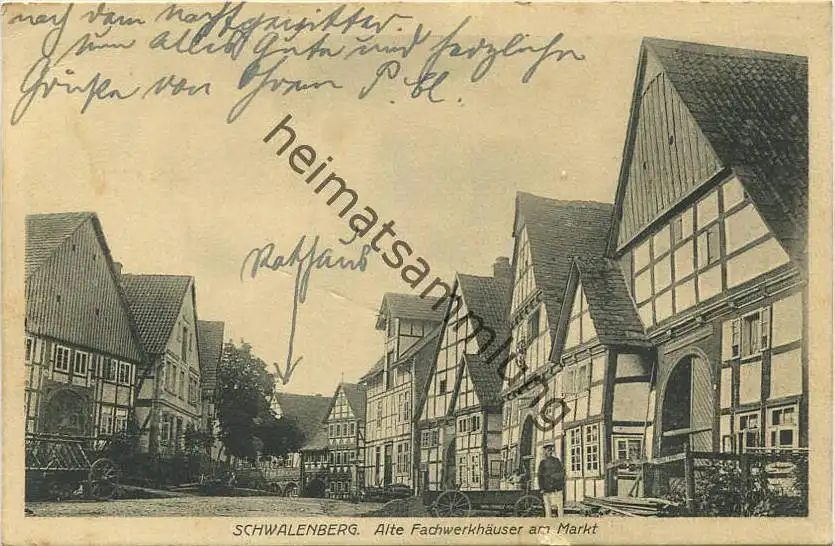 nach dem Nachtgewitter.
Um Alles Gute und herzliche
Grüße von Ihrem P. Bl.
Rathaus
heimatsammlung.de
SCHWALENBERG. Alte Fachwerkhäuser am Markt